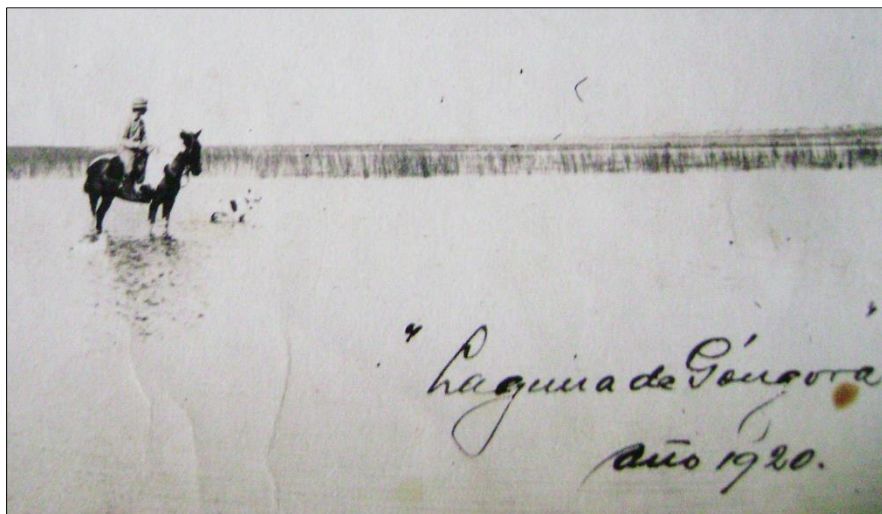 "Laguna de Góngora"
Año 1920.